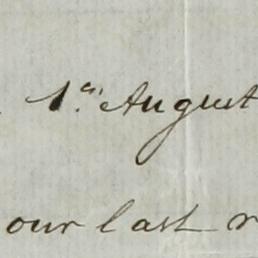 1st August
our last